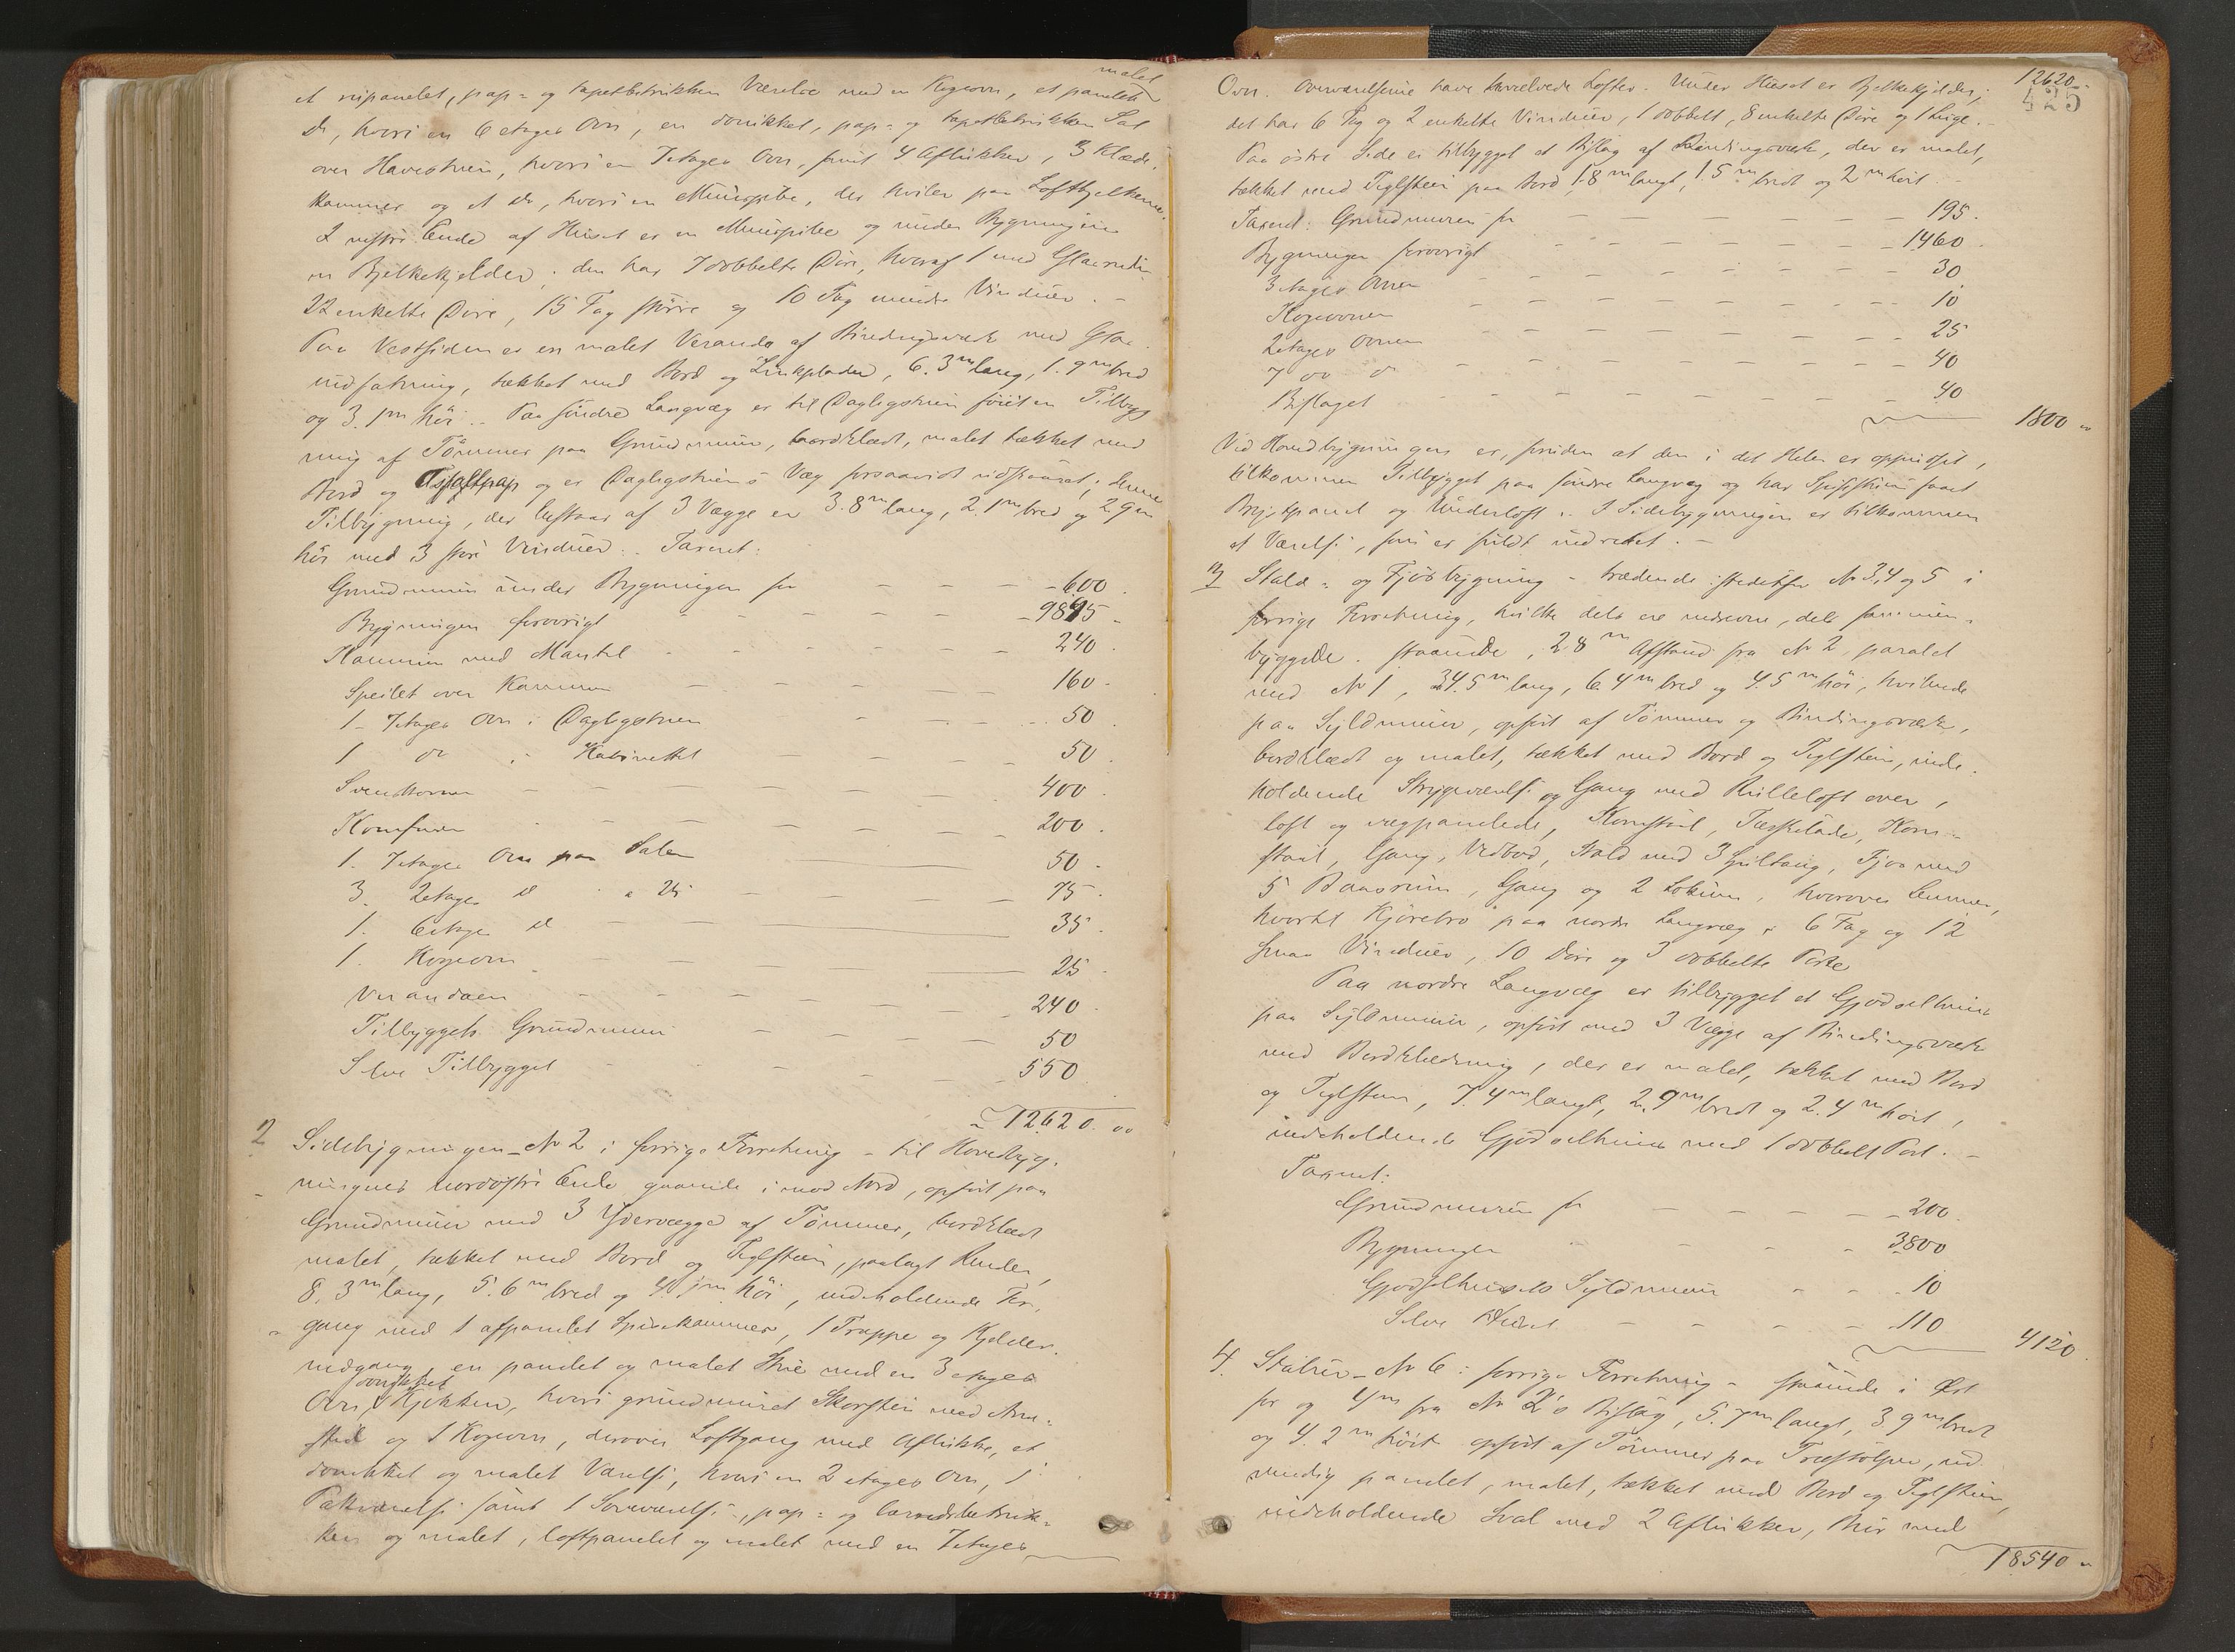 malet
et nipanelet, pap- og tapetbetrukken Værelse med en Kogeovn, et panelet
do, hvori en 6 etages Ovn, en donikket, pap- og tapetbetrukken Sal
over Havestuen, hvori en 7etages Ovn, samt 4 Aflukker, 3 Klæde-
kammer og et do, hvori en Muurpibe, der hviler paa Loftbjelkerne.
I vestre Ende af Huset er en Muurpibe og under Bygningen
en Bjelkekjelder; den har 7 dobbelte Döre, hvoraf 1 med Glasruder
22 enkelte Döre, 15 Fag större og 10 Fag mindre Vinduer. -
Paa Vestsiden er en malet Veranda af Bindingsværk med Glas-
indfatning, tækket med Bord og Zinkplader, 6.3m lang, 1.9m bred
og 3.1m höi. Paa söndre Langvæg er til Dagligstuen föiet en Tilbyg-
ning af Tömmer paa Grundmuur, bordklædt, malet tækket med
Bord og Asfaltpap og er Dagligstuens Væg forsaavidt udskaaret; denne
Tilbygning, der bestaar af 3 Vægge er 3.8m lang, 2.1m bred og 2.9m
höi med 3 store Vinduer. Taxeret:
Grundmuren under Bygningen for - - - - 600.
Bygningen forövrigt - - - - 9895.
Kaminen med Mantel - - - - 240.
Speilet over Kaminen - - - - 160.
1 - 7etages Ovn i Dagligstuen - - - 50.
1 do i Kabinettet - - - - 50.
Svendkovnen - - - - 400.
Komfuren - - - - 200.
1. 7etages Ovn paa Salen - 50.
3. 2etages d a 25 - - - 75.
1. 6etages d - - 35.
1. Kogeovn - - - 25.
Verandaen - - - - 240.
Tilbyggets Grundmuur - - - 50
Selve Tilbygget - - - - 550
12620.00
2 Sidebygningen - No 2 i forrige Forretning - til Hovedbyg-
ningens nordöstre Ende gaaende imod Nord, opfört paa
Grundmuur med 3 Ydervægge af Tömmer, bordklædt
malet, tækket med Bord og Teglsteen, paalagt Render,
8.3m lang, 5.6m bred og 4.1m höi, indeholdende For-
gang med 1 afpanelet Spisekammer, 1 Trappe og Kjelder-
nedgang, en panelet og malet Stue med en 3 etages
donikket
Ovn, Kjökken, hvori grundmuret Skorsten med Arne-
sted og 1 Kogeovn, derover Loftgang med Aflukke, et
donikket og malet Værelse, hvori en 2 etages Ovn, 1
Pakværelse samt 1 Soveværelse, pap- og lærredsbetruk-
ken og malet, loftpanelet og malet med en 7etages
12620.
425
Ovn. Overværelserne have hvælvede Lofter. Under Huset er Bjelkekjelder;
det har 6 Fag og 2 enkelte Vinduer, 1 dobbelt, 8 enkelte Döre og 1 Luge.
Paa östre Side er tilbygget et Bislag af Bindingsværk, der er malet,
tækket med Teglsteen paa Bord, 1.8m langt, 1.5m bredt og 2m höit
Taxeret: Grundmuren for - - - - 195.
Bygningen forövrigt - - - - 1460.
3etages Ovnen - - - - 30
Kogeovnen - - - - 10
2etages Ovnen - - - - 25
7 do d - - - - 40
Bislaget - - - - 40
1800 "
Ved Hovedbygningen er, foruden at den i det Hele er oppudset,
tilkommen Tilbygget paa söndre Langvæg og har Spisestuen faaet
Brystpanel og Underloft. I Sidebygningen er tilkommen
et Værelse, som er fuldt indredet. -
3 Stald- og Fjösbygning - trædende istedetfor No 3, 4 og 5 i
forrige Forretning, hvilke dels ere nedrevne, dels sammen-
byggede. staaende i 28m Afstand fra No 2 paralel
med No 1, 34.5m lang, 6.4m bred og 4.5m höi, hvilende
paa Syldmuur, opfört af Tömmer og Bindingsværk,
bordklædt og malet, tækket med Bord og Teglsteen, inde-
holdende Strygeværelse og Gang med Rulleloft over,
loft og vægpanelede, Kornstal, Tærskelade, Korn-
staal, Gang, Vedbod, Stald med 3 Spiltoug, Fjös med
5 Baasrum, Gang og 2 Lokum, hvorover Lemmer,
hvortil Kjörebro paa nordre Langvæg; 6 Fag og 12
smaa Vinduer, 10 Döre og 3 dobbelte Porte
Paa nordre Langvæg er tilbygget et Gjödselhuus
paa Syldmuur, opfört med 3 Vægge af Bindingsværk
med Bordklædning, der er malet, tækket med Bord
og Teglsteen, 7.4m langt, 2.9m bredt og 2.4m höit,
indeholdende Gjödselhuus med 1 dobbelt Port. -
Taxeret:
Grundmuren for - - - - 200.
Bygningen - - - - 3800
Gjödselhusets Syldmuur - - - 10
Selve Huset - - - - 110
4120.
4. Stabur - No 6 i forrige Forretning - staaende i Öst
for og 4m fra No 2's Bislag, 5.7m langt, 3.9m bredt
og 4.2m höit opfört af Tömmer paa Træstolper, ud-
vendig panelet, malet, tækket med Bord og Teglsteen,
indeholdende Sval med 2 Aflukker, Bur med
18540 "